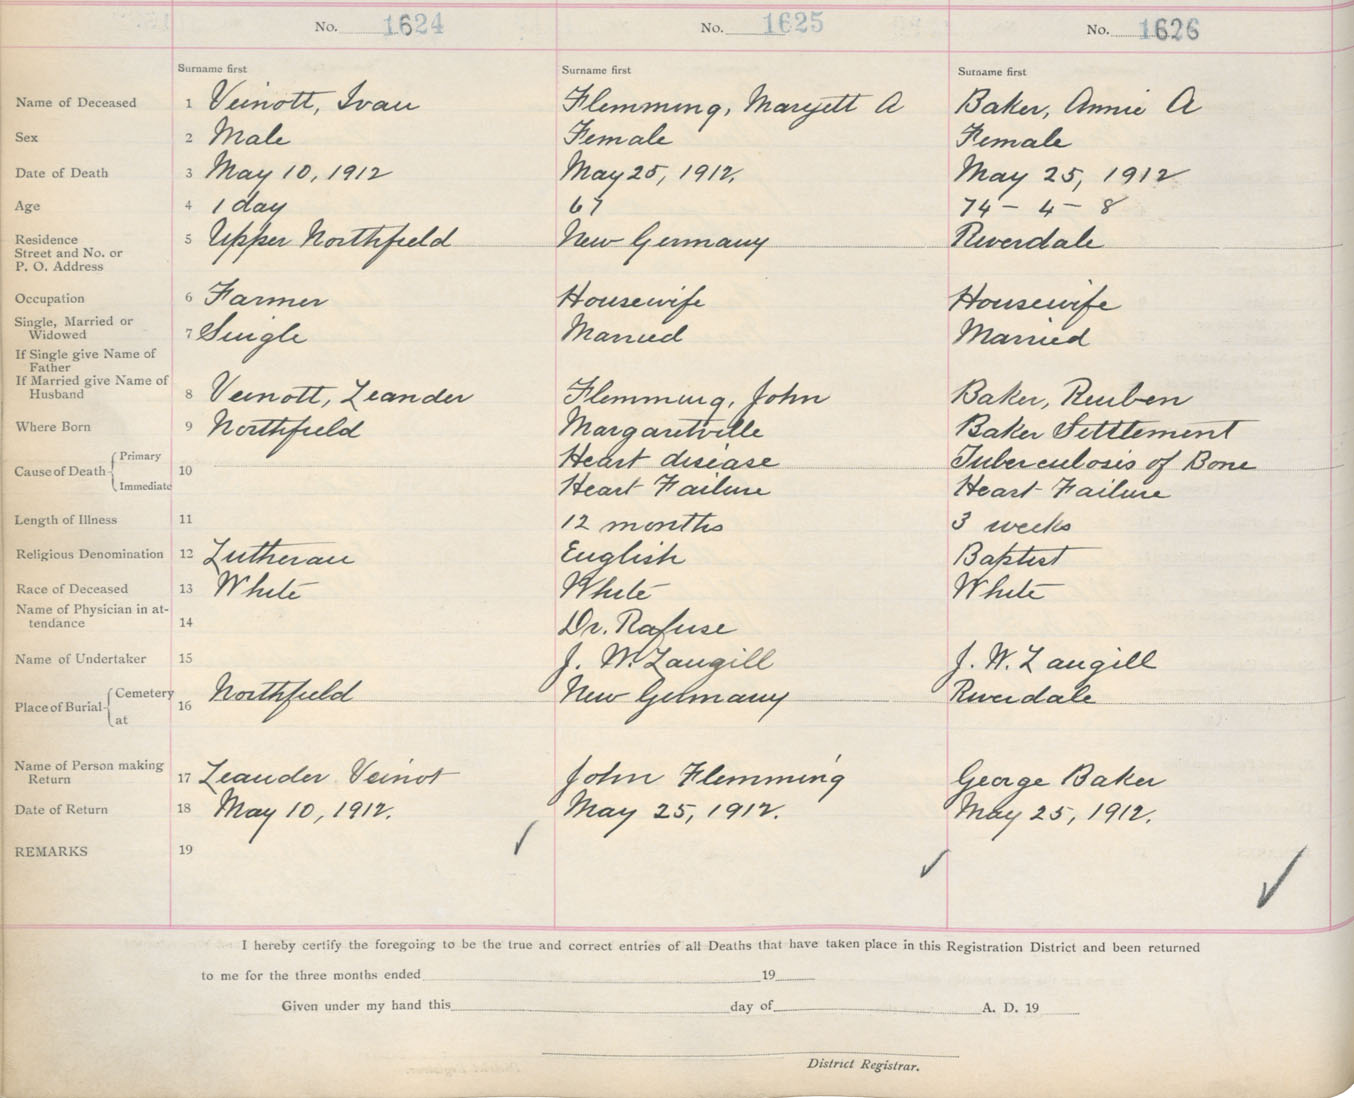 No. 1624 No. 1625 No. 1626
Surname first Surname first Surname first
Name of Deceased 1 Veinott, Ivan Flemming, Maryett A Baker, Annie A
Sex 2 Male Female Female
Date of Death 3 May 10, 1912 May 25, 1912. May 25, 1912
Age 4 1 day 67 74 - 4 - 8
Residence 5 Upper Northfield New Germany Riverdale
Street and No. or
P. O. Address
Occupation 6 Farmer Housewife Housewife
Single, Married or
Widowed 7 Single Married Married
If Single give Name of
Father
If Married give Name of
Husband 8 Veinott, Leander Flemming, John Baker, Reuben
Where Born 9 Northfield Margaretville Baker Settlement
Cause of Death Primary 10 Heart disease Tuberculosis of Bone
Immediate Heart Failure Heart Failure
Length of Illness 11 12 months 3 weeks
Religious Denomination 12 Lutheran English Baptist
Race of Deceased 13 White White White
Name of Physician in at-
tendance 14 Dr. Rafuse
Name of Undertaker 15 J. W. Langill J. W. Langill
Place of Burial Cemetery 16 Northfield New Germany Riverdale
at
Name of Person making
Return 17 Leander Veinot John Flemming George Baker
Date of Return 18 May 10, 1912. May 25, 1912. May 25, 1912.
REMARKS 19
I hereby certify the foregoing to be the true and correct entries of all Deaths that have taken place in this Registration District and been returned
to me for the three months ended 19
Given under my hand this day of A. D. 19
District Registrar.